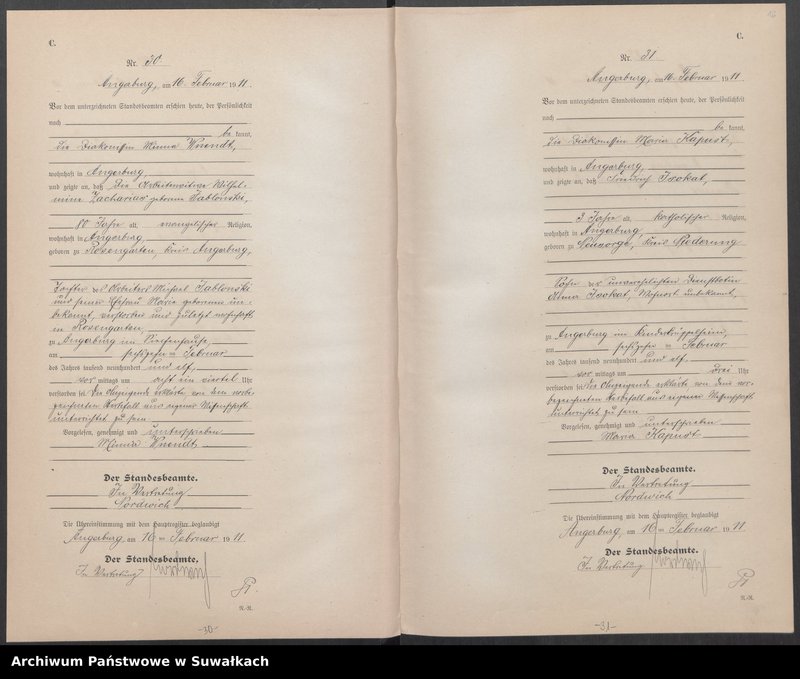 C.
Nr. 30
Angerburg, am 16. Februar 1911.
Vor dem unterzeichneten Standesbeamten erschien heute, der Persönlichkeit
nach
be kannt,
die Diakonissin Minna Wnendt,
wohnhaft in Angerburg,
und zeigte an, daß die Arbeiterwitwe Wilhel-
mine Zacharias geborene Jablonski,
80 Jahre alt, evangelischer Religion,
wohnhaft in Angerburg,
geboren zu Rosengarten, Kreis Angerburg,
Tochter des Arbeiters Michael Jablonski
und seiner Ehefrau Maria geborene un-
bekannt, verstorben und zuletzt wohnhaft
in Rosengarten,
zu Angerburg im Siechenhause,
am sechszehnten Februar
des Jahres tausend neunhundert und elf,
vor mittags um acht ein viertel Uhr
verstorben sei. Die Anzeigende erklärte von dem vorbe-
zeichneten Sterbefall aus eigener Wissenschaft
unterrichtet zu sein
Vorgelesen, genehmigt und unterschrieben
Minna Wnendt
Der Standesbeamte.
In Vertretung
Nordwich
Die Übereinstimmung mit dem Hauptregister beglaubigt
Angerburg, am 16ten Februar 1911.
Der Standesbeamte.
In Vertretung
R.-R.
-30-
16
C.
Nr. 31
Angerburg, am 16. Februar 1911.
Vor dem unterzeichneten Standesbeamten erschien heute, der Persönlichkeit
nach
be kannt,
die Diakonissin Maria Kapust,
wohnhaft in Angerburg,
und zeigte an, daß Friedrich Isokat,
3 Jahre alt, katholischer Religion,
wohnhaft in Angerburg,
geboren zu Kreis
Sohn der unverehelichten Dienstbotin
Alma Isokat, Wohnort unbekannt,
zu Angerburg im Kinderkrüppelheim,
am sechszehnten Februar
des Jahres tausend neunhundert und elf,
vor mittags um drei Uhr
verstorben sei. Die Anzeigende erklärte von dem vor-
bezeichneten Sterbefall aus eigener Wissenschaft
unterrichtet zu sein
Vorgelesen, genehmigt und unterschrieben
Maria Kapust
Der Standesbeamte.
In Vertretung
Nordwich
Die Übereinstimmung mit dem Hauptregister beglaubigt
Angerburg, am 16ten Februar 1911.
Der Standesbeamte.
In Vertretung
R.-R.
-31-
Archiwum Państwowe w Suwałkach